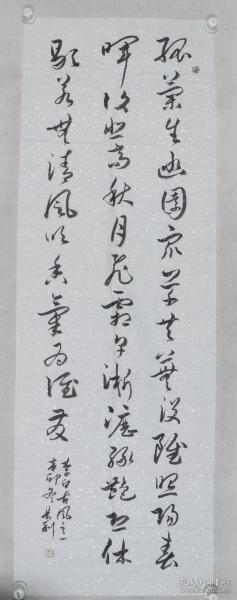 孤蘭生幽園眾草共蕪沒雖照陽春
暉復悲高秋月飛霜早淅瀝綠艷恐休
歇若無清風吹香氣為誰發
李白古風之一